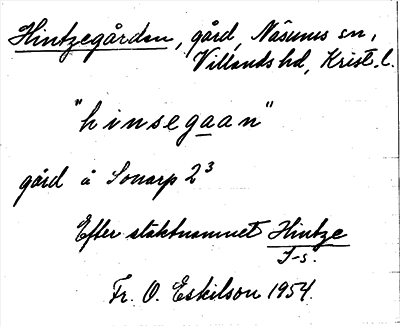 Hintzegården, gård, Näsums sn,
Villands hd, Krist. l.
"hinsegaan"
gård å Sonarp 2³
Efter släktnamnet Hintze
J-s.
Fr. O. Eskilson 1954.